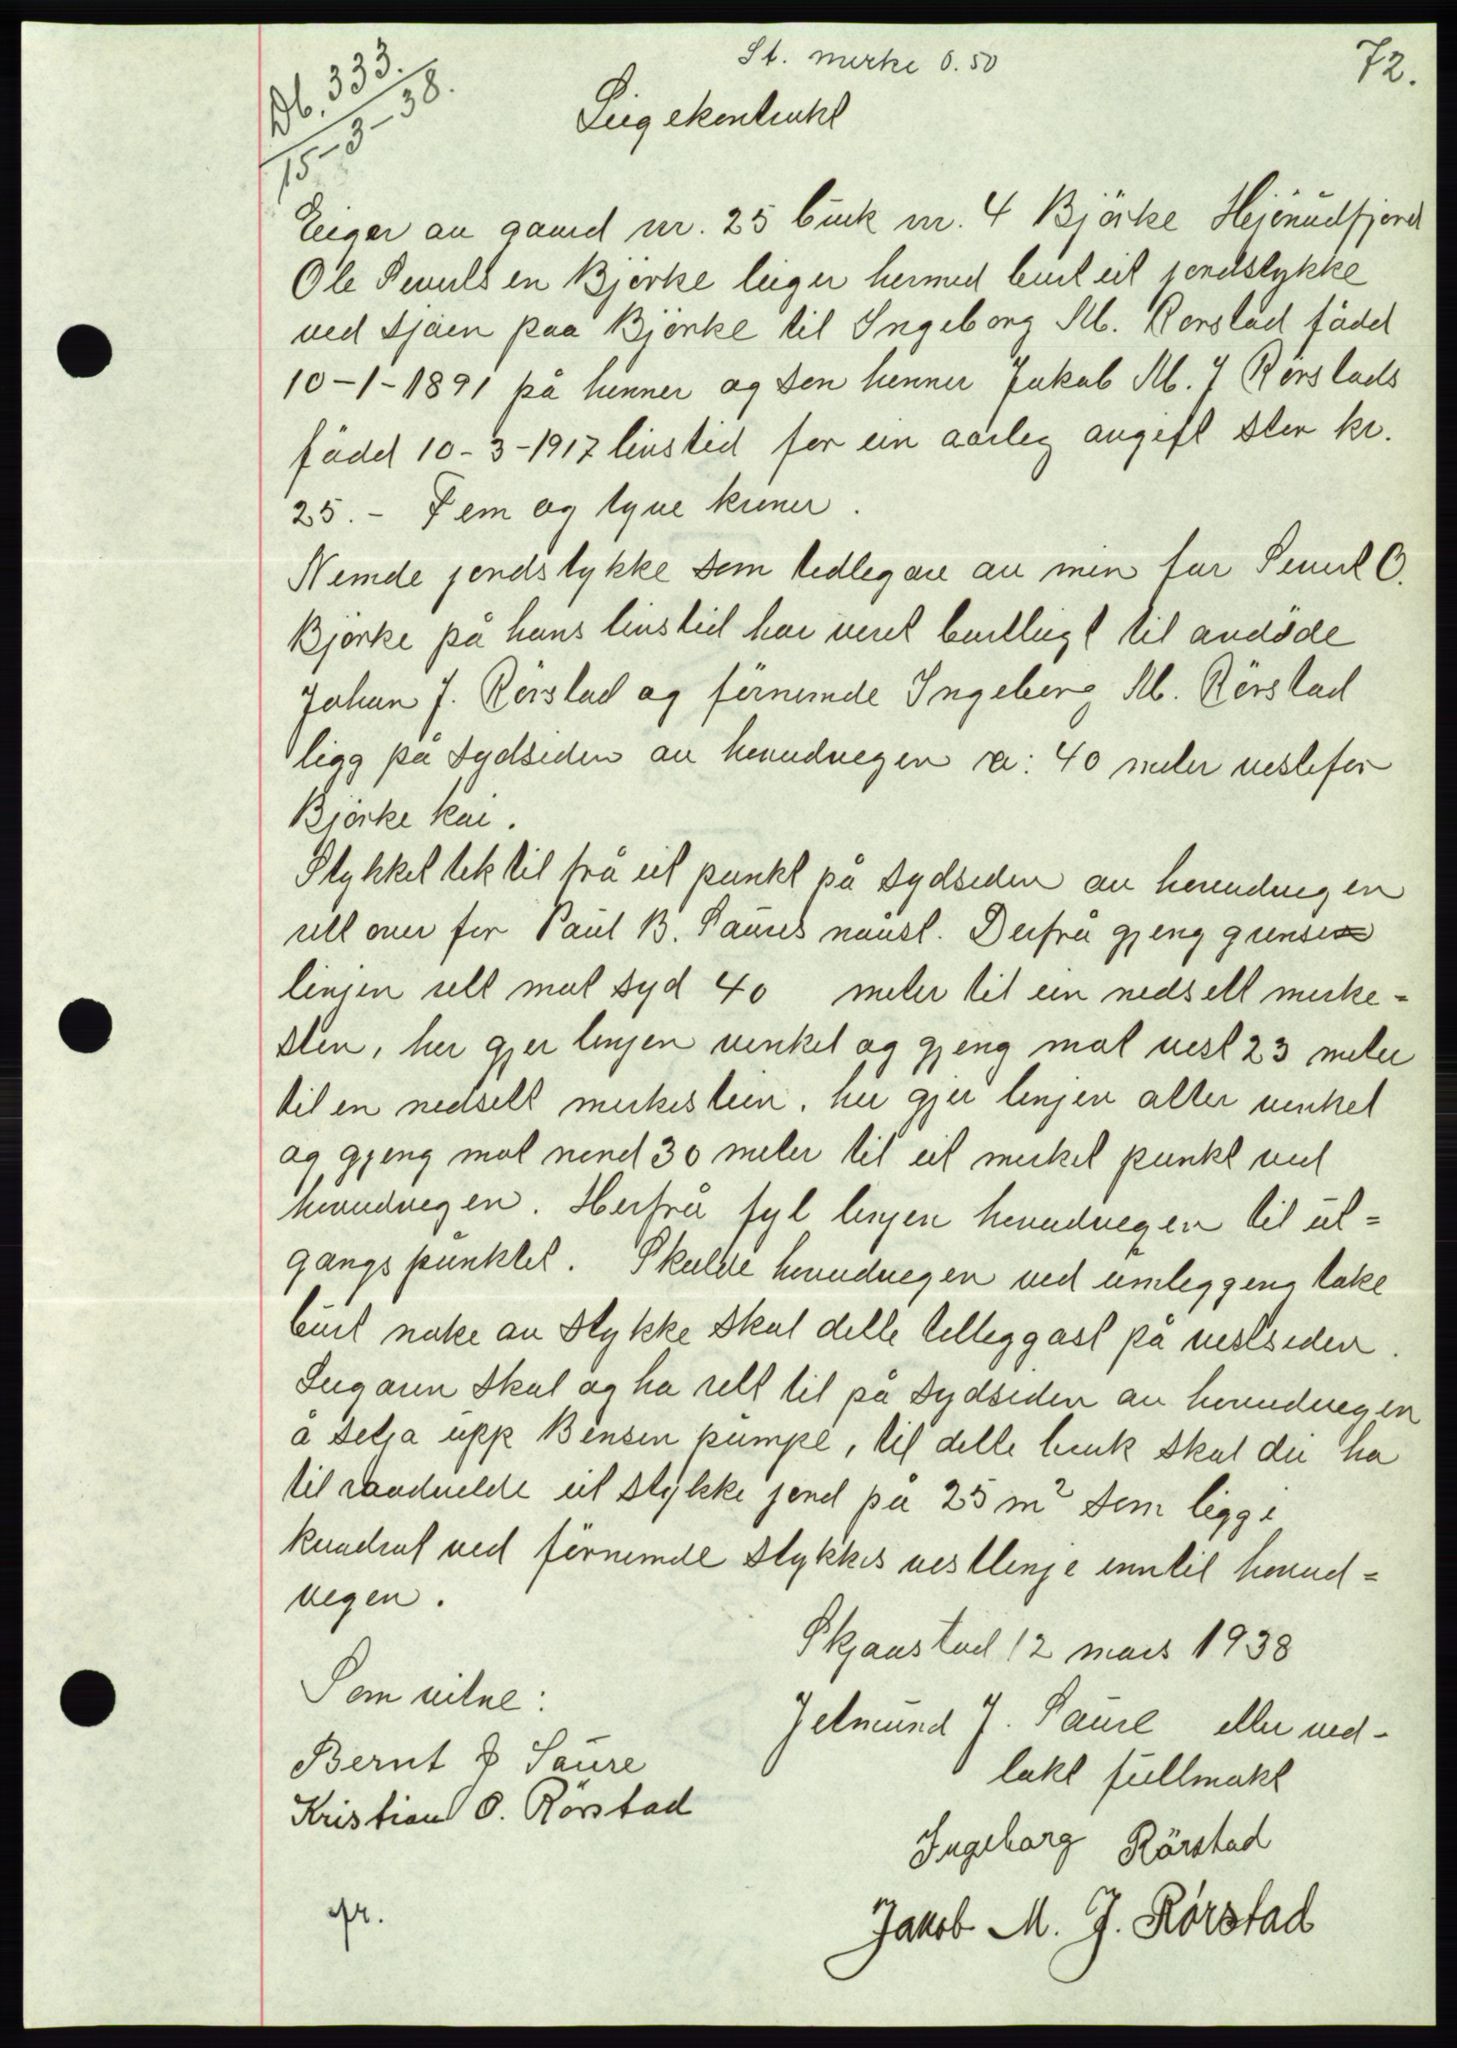 St. merke 0.50
72.
Db. 333.
15-3-38.
Leigekontrakt
Eigar av gaard nr. 25 bruk nr. 4 Björke Hejörudfjord
Ole Severtsen Björke leiger hermed burt eit jordstykke
ved sjöen paa Björke til Ingeborg M. Rörstad född
10-1-1891 på henner og son henner Jakob M. J Rörstads
född 10-3-1917 livstid for ein aarleg avgift stor kr.
25.- Fem og tyve kroner.
Nemde jordstykke som tidlegare av min far Severt O.
Björke på hans livstid har veret burtleigt til avdöde
Johan J. Rörstad og förnemde Ingeborg M. Rörstad
ligg på sydsiden av hovudvegen ca: 40 meter vestefor
Björke kai.
Stykket tek til frå eit punkt på sydsiden av hovudvegen
rett over for Paul B. Saures naust. Derfrå gjeng grense
linjen rett mot syd 40 meter til ein nedsett merke=
sten, her gjer linjen vinkel og gjeng mot vest 23 meter
til en nedsett merkestein. her gjer linjen atter vinkel
og gjeng mot nord 30 meter til eit merket punkt ved
hovudvegen. Herfrå fyl linjen hovudvegen til ut=
gangspunktet. Skulde hovudvegen ved umleggeng take
burt noke av stykke skal dette tilleggast på vestsiden.
Leigaren skal og ha rett til på sydsiden av hovudvegen
å setja upp Bensin pumpe, til dette bruk skal dei ha
til raadvelde eit stykke jord på 25 m² som ligg i
kvadrat ved förnemde stykkes vestlinje inntil hovud=
vegen.
Skjaastad 12 mars 1938
Som vitne:
Jetmund J. Saure etter ved-
lakt fullmakt
Bernt J Saure
Kristian O. Rörstad
Ingeborg Rörstad
Jakob M. J. Rörstad